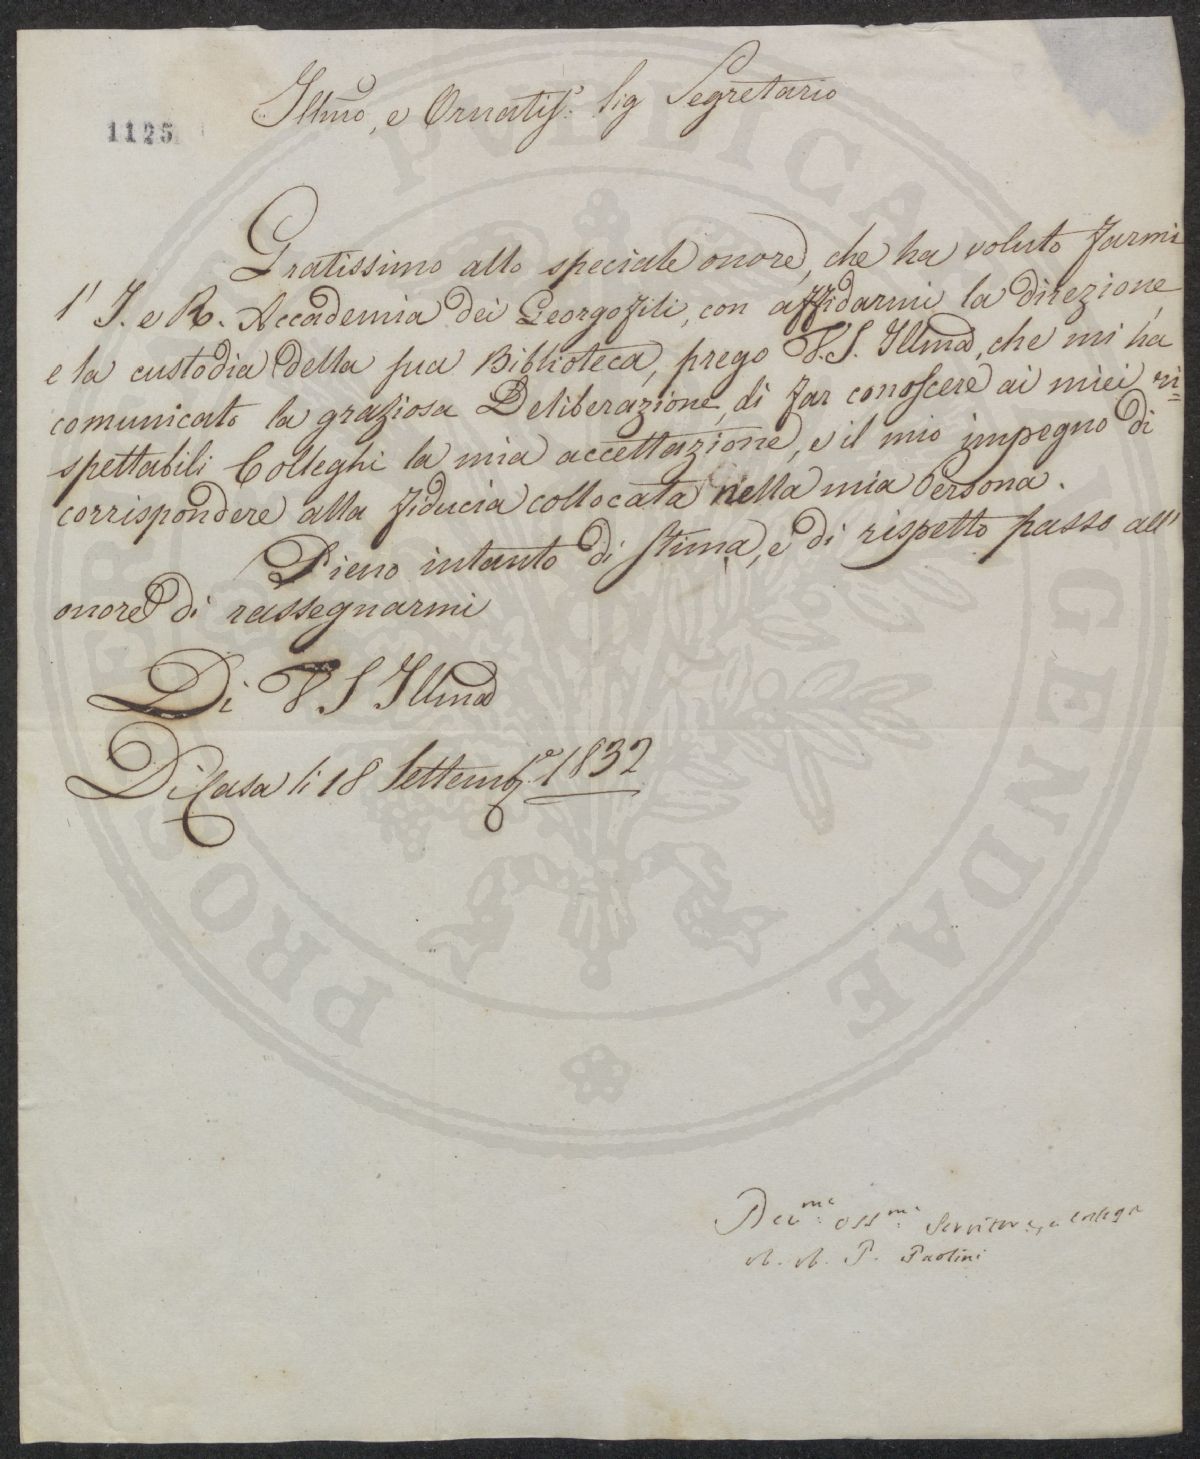 Illmo, e Ornatiss.o Sig Segretario
1125
Gratissimo allo speciale onore, che ha voluto farmi
l' I. e R. Accademia dei Georgofili, con affidarmi la direzione,
e la custodia della sua Biblioteca, prego V.S. Illma, che mi ha
comunicato la graziosa Deliberazione, di far conoscere ai miei ri=
spettabili Colleghi la mia accettazione, e il mio impegno di
corrispondere alla fiducia collocata nella mia Persona.
Pieno intanto di stima, e di rispetto passo all'
onore di rassegnarmi
Di V S Illma
Di Casa li 18 Settembe. 1832
Devmo. ossmo. Servitore, e collega
A. A. P. Paolini
PROSPERITATI PUBLICAE AUGENDAE